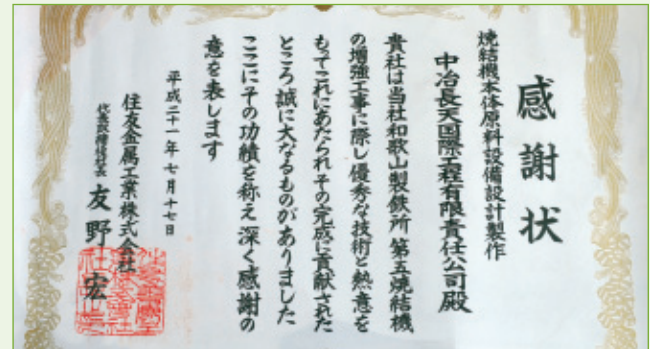 感謝状
焼結機本体原料設備設計製作
中冶長天国際工程有限責任公司殿
貴社は当社和歌山製鉄所第五焼結機
の増強工事に際し優秀な技術と熱意を
もてこれにあたられその完成に貢献された
ところ誠に大なるものがありました
ここにその功績を称え深く感謝の
意を表します
平成二十一年七月十七日
住友金属工業株式会社
代表取締役社長 友野 宏